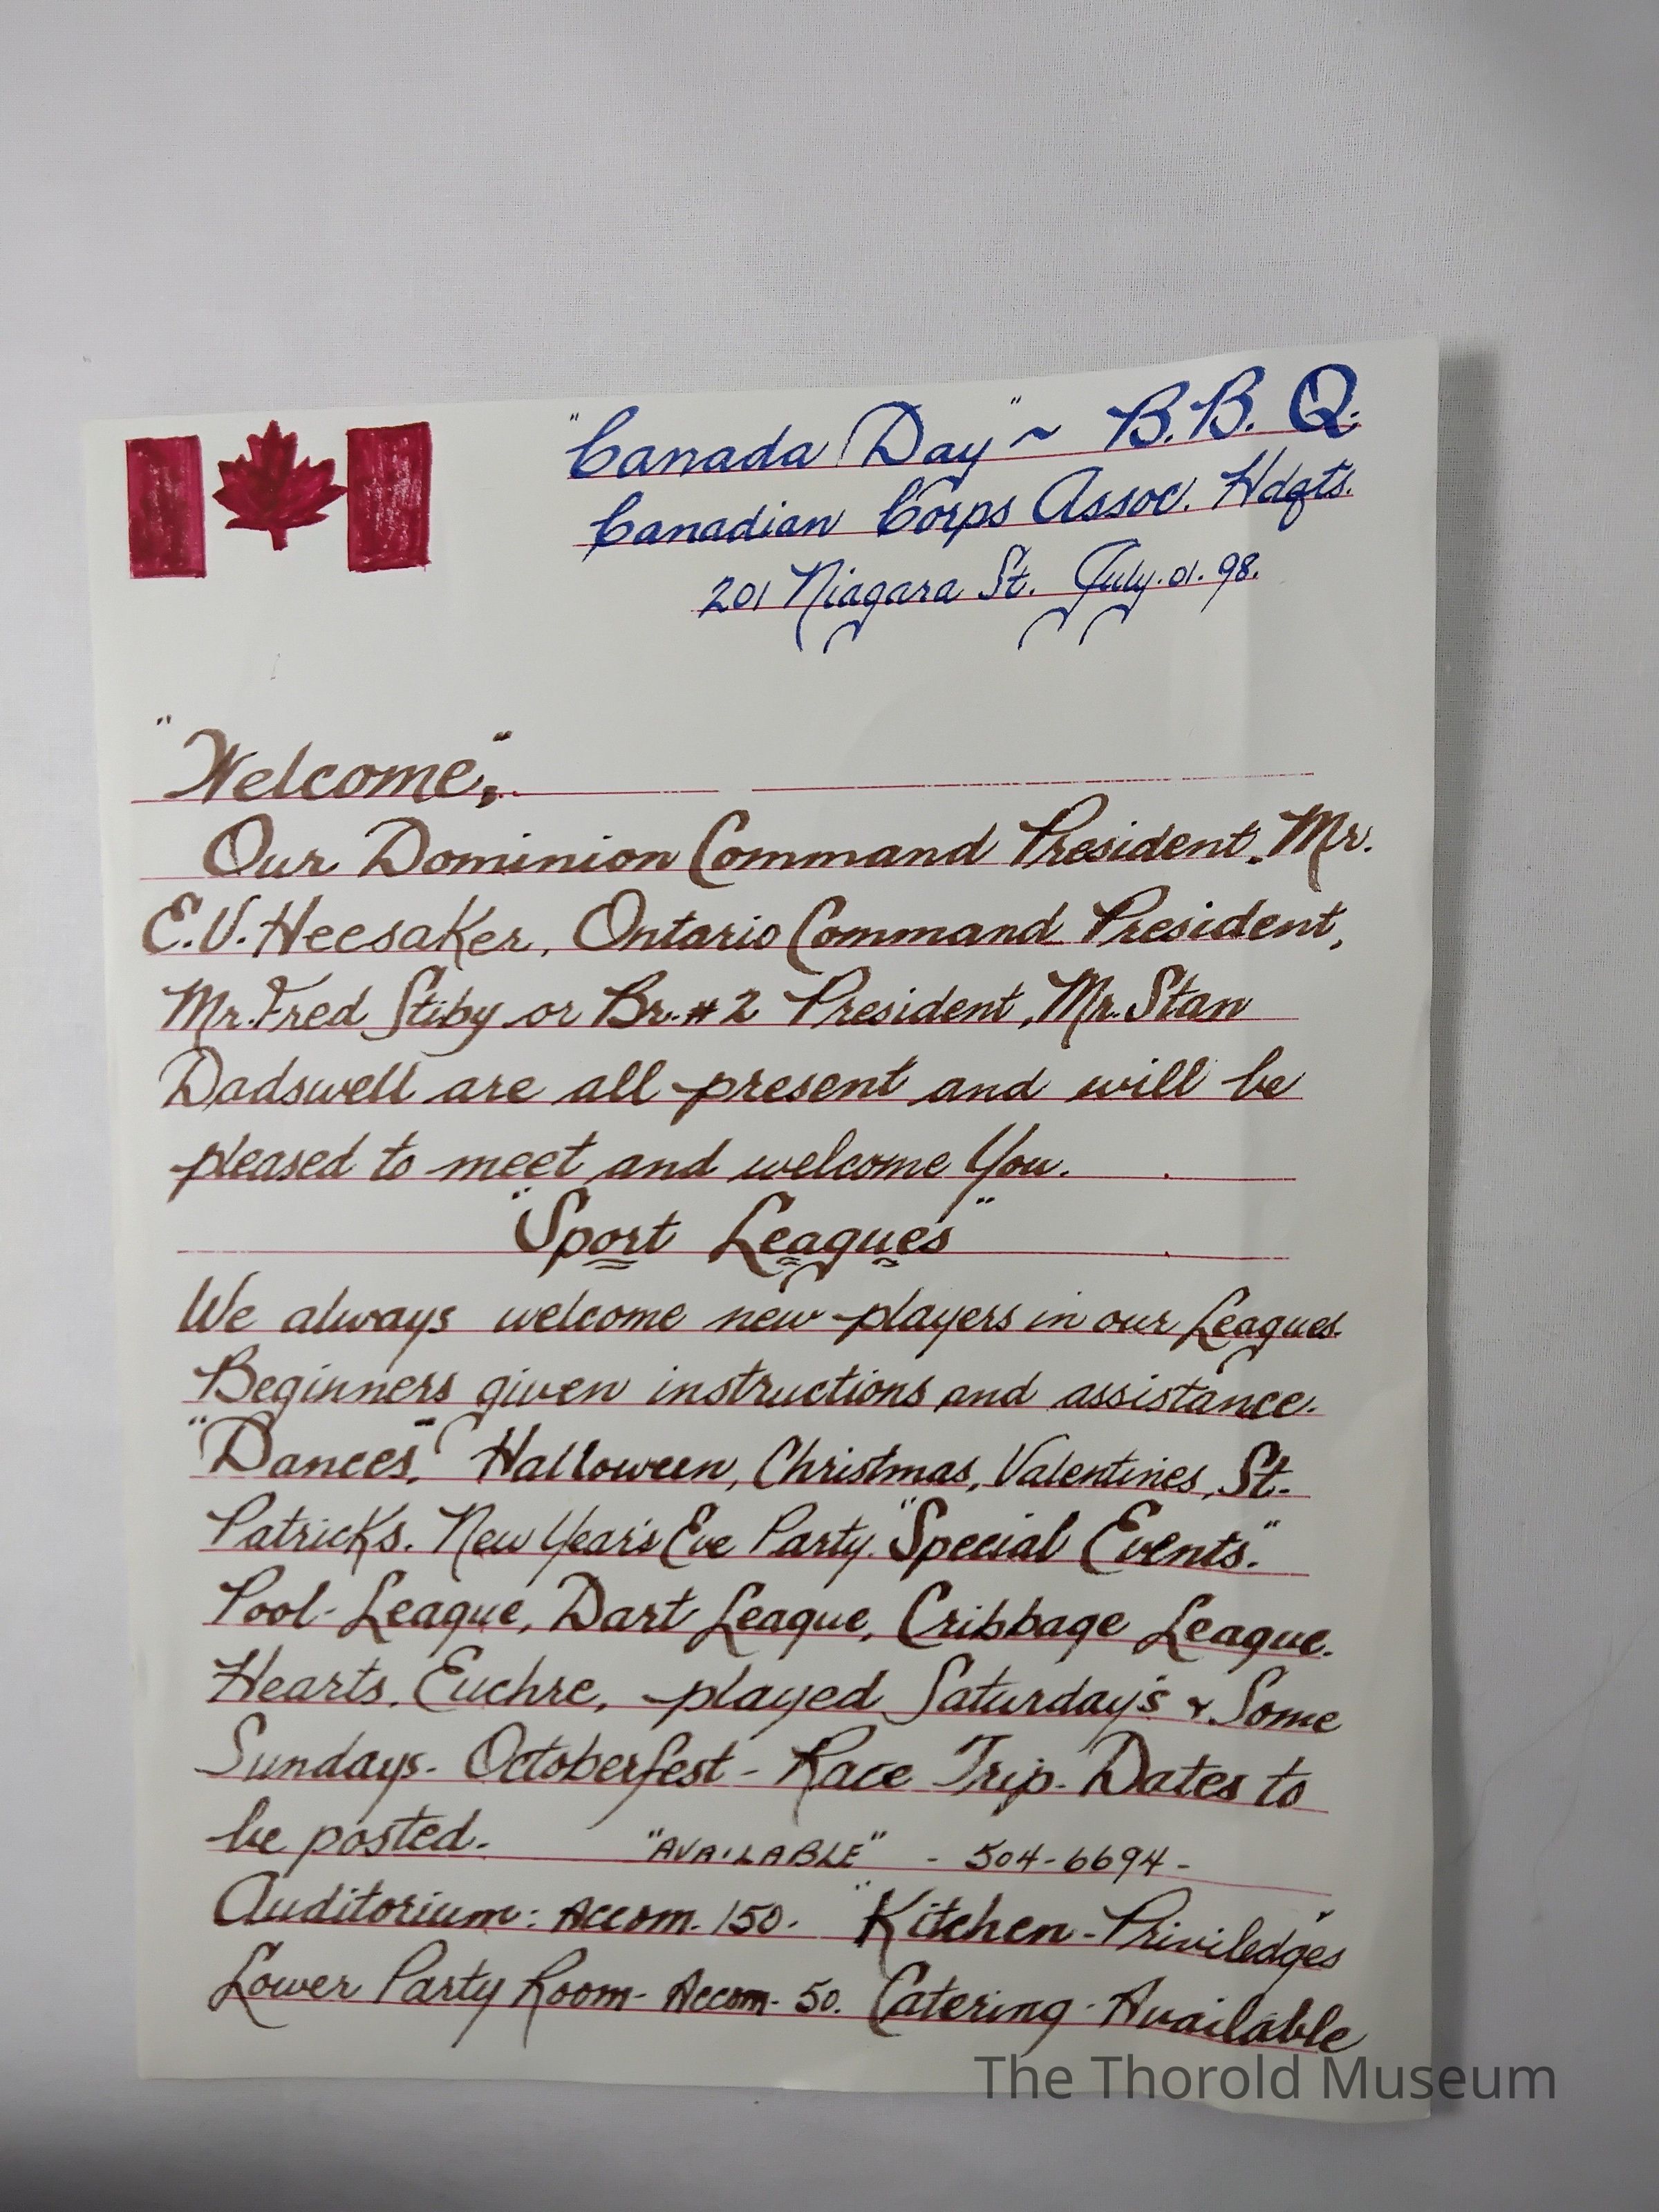 "Canada Day" ~ B.B.Q.
Canadian Corps Assoc. Hdqts.
201 Niagara St. July.01.98.
"Welcome",
Our Dominion Command President, Mr.
E.V. Heesaker, Ontario Command President,
Mr. Fred Stiby or Br. #2 President, Mr. Stan
Dadswell are all present and will be
pleased to meet and welcome You.
"Sport Leagues"
We always welcome new players in our Leagues.
Beginners given instructions and assistance.
"Dances," Halloween, Christmas, Valentines, St.
Patricks. New Year's Eve Party. "Special Events."
Pool-League, Dart League, Cribbage League.
Hearts, Euchre, played Saturday's & Some
Sundays- Octoberfest - Race Trip- Dates to
be posted. "AVAILABLE" - 504-6694-
Auditorium: Accom. 150. "Kitchen-Priviledges"
Lower Party Room- Accom- 50. Catering-Available
The Thorold Museum